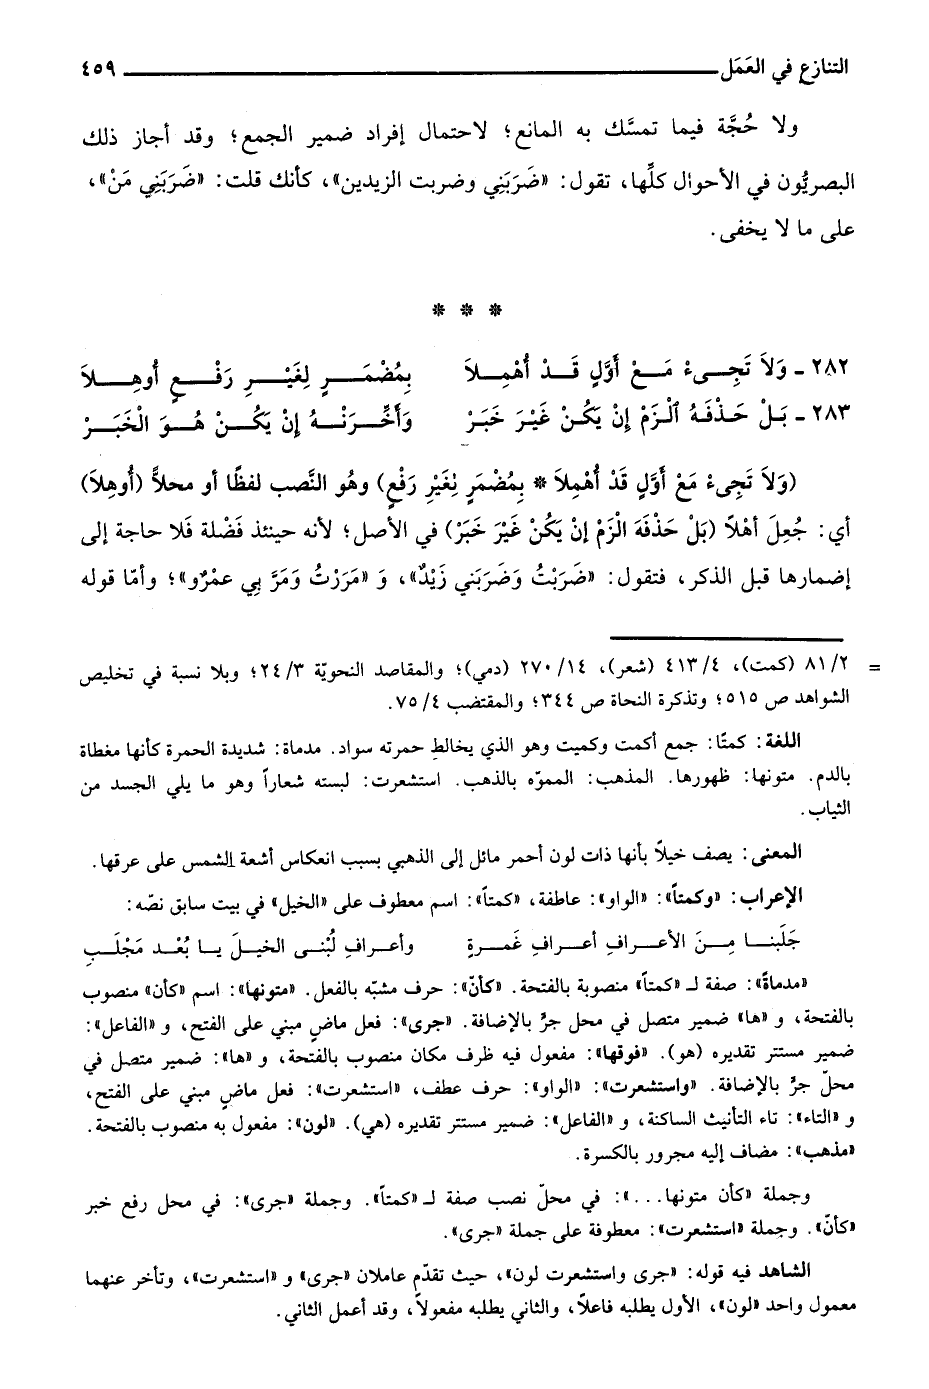 التنازع في العَمَل ٤٥٩
ولا حُجَّة فيما تمسَّك به المانع؛ لاحتمال إفراد ضمير الجمع؛ وقد أجاز ذلك
البصريُّون في الأحوال كلِّها، تقول: «ضَرَبَنِي وضربت الزيدين»، كأنك قلت: «ضَرَبَنِي مَنْ»،
على ما لا يخفى.
* * *
٢٨٢ - وَلاَ تَجِيءْ مَعْ أَوَّلٍ قَدْ أُهْمِلاَ بِمُضْمَرٍ لِغَيْرِ رَفْعٍ أُوهِلاَ
٢٨٣ - بَلْ حَذْفَهُ ٱلْزَمْ إِنْ يَكُنْ غَيْرَ خَبَرْ وَأَخِّرَنْهُ إِنْ يَكُنْ هُوَ الْخَبَرْ
(وَلاَ تَجِيءْ مَعْ أَوَّلٍ قَدْ أُهْمِلاَ * بِمُضْمَرٍ لِغَيْرِ رَفْعٍ) وهُو النَّصب لفظًا أو محلاًّ (أُوهِلاَ)
أي: جُعِلَ أهْلاً (بَلْ حَذْفَهُ الْزَمْ إِنْ يَكُنْ غَيْرَ خَبَرْ) في الأصل؛ لأنه حينئذ فَضْلة فَلا حاجة إلى
إضمارها قبل الذكر، فتقول: «ضَرَبْتُ وَضَرَبَني زَيْدٌ»، وَ «مَرَرْتُ وَمَرَّ بِي عمْرٌو»؛ وأمّا قوله
= ٨١/٢ (كمت)، ٤١٣/٤ (شعر)، ٢٧٠/١٤ (دمي)؛ والمقاصد النحويّة ٢٤/٣؛ وبلا نسبة في تخليص
الشواهد ص ٥١٥؛ وتذكرة النحاة ص ٣٤٤؛ والمقتضب ٧٥/٤.
اللغة: كمتًا: جمع أكمت وكميت وهو الذي يخالط حمرته سواد. مدماة: شديدة الحمرة كأنها مغطاة
بالدم. متونها: ظهورها. المذهب: المموّه بالذهب. استشعرت: لبسته شعاراً وهو ما يلي الجسد من
الثياب.
المعنى: يصف خيلاً بأنها ذات لون أحمر مائل إلى الذهبي بسبب انعكاس أشعة الشمس على عرقها.
الإعراب: «وكمتاً»: «الواو»: عاطفة، «كمتاً»: اسم معطوف على «الخيل» في بيت سابق نصّه:
جَلَبنا مِنَ الأعرافِ أعرافِ غَمرةٍ وأعرافِ لُبْنى الخيلَ يا بُعْد مَجْلَبِ
«مدماةً»: صفة لـ «كمتاً» منصوبة بالفتحة. «كأنّ»: حرف مشبّه بالفعل. «متونها»: اسم «كأن» منصوب
بالفتحة، و «ها» ضمير متصل في محل جرّ بالإضافة. «جرى»: فعل ماضٍ مبني على الفتح، و «الفاعل»:
ضمير مستتر تقديره (هو). «فوقها»: مفعول فيه ظرف مكان منصوب بالفتحة، و «ها»: ضمير متصل في
محلّ جرّ بالإضافة. «واستشعرت»: «الواو»: حرف عطف، «استشعرت»: فعل ماضٍ مبني على الفتح،
و «التاء»: تاء التأنيث الساكنة، و «الفاعل»: ضمير مستتر تقديره (هي). «لون»: مفعول به منصوب بالفتحة.
«مذهب»: مضاف إليه مجرور بالكسرة.
وجملة «كأن متونها...»: في محلّ نصب صفة لـ «كمتاً». وجملة «جرى»: في محل رفع خبر
«كأنّ». وجملة «استشعرت»: معطوفة على جملة «جرى».
الشاهد فيه قوله: «جرى واستشعرت لون»، حيث تقدّم عاملان «جرى» و «استشعرت»، وتأخر عنهما
معمول واحد «لون»، الأول يطلبه فاعلاً، والثاني يطلبه مفعولاً، وقد أعمل الثاني.